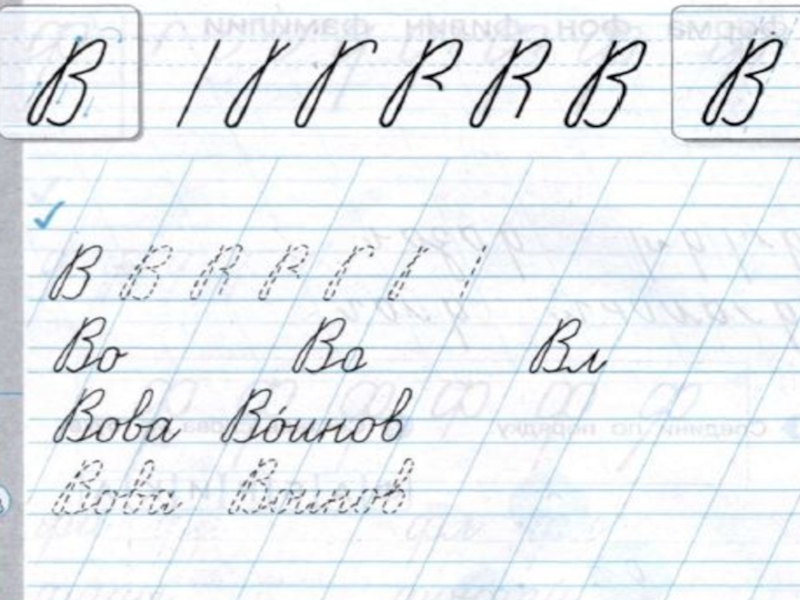 В В В
В В
Во Ва Вл
Вова Во́инов
Вова Воинов